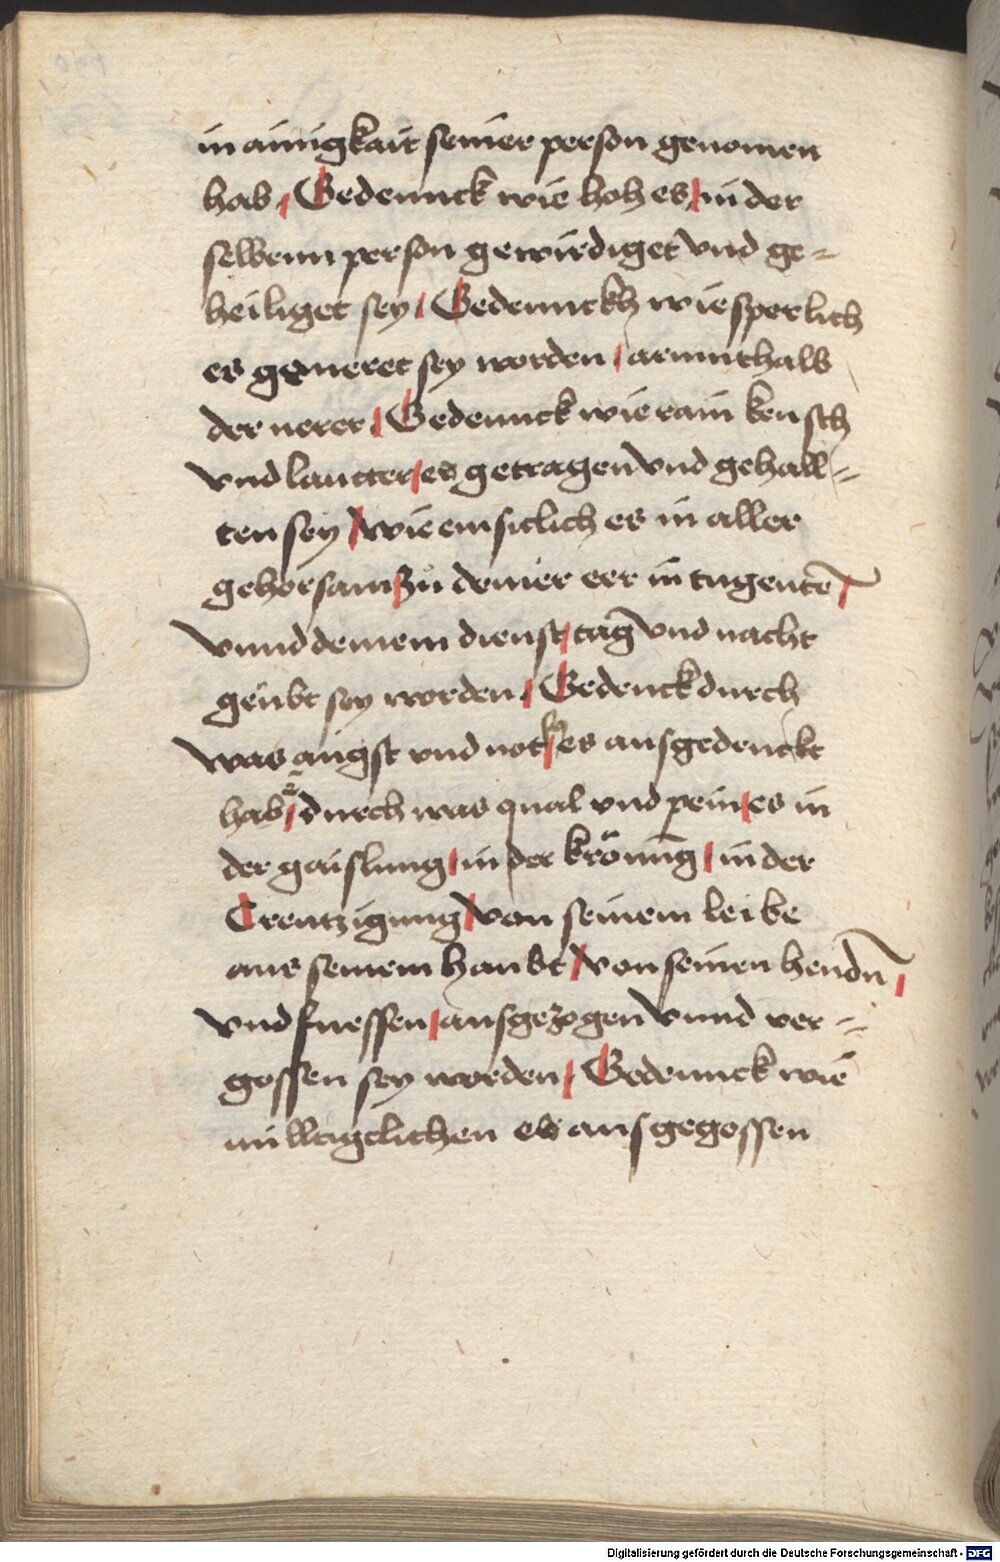 in ainigkait seiner person genomen
hab / Gedennck wie hoh es / in der
selbenn person gewirdiget vnd ge=
heiliget sey / Gedennckh wie sperlich
es generet sey worden / armmthalb
der nerer / Gedennck wie rain keusch
vnd lautter / es getragen vnd gehall=
ten sey / wie einsitlich es in aller
gehorsam zu deiner eer in tugentē /
vnnd deinem dienst / tag vnd nacht
geübt sey worden / Gedenck durch
was angst vnd not / es ausgedenckt
hab / durch was qual vnd pein / es in
der gaislung / in der krönūg / in der
Creutzigung / von seinem leibe
aus seinem haubt / von seinen hendn̄ /
vnd fuessen / ausgezogen vnnd ver=
gossen sey worden / Gedennck wie
milltigclichen es ausgegossen
Digitalisierung gefördert durch die Deutsche Forschungsgemeinschaft - DFG